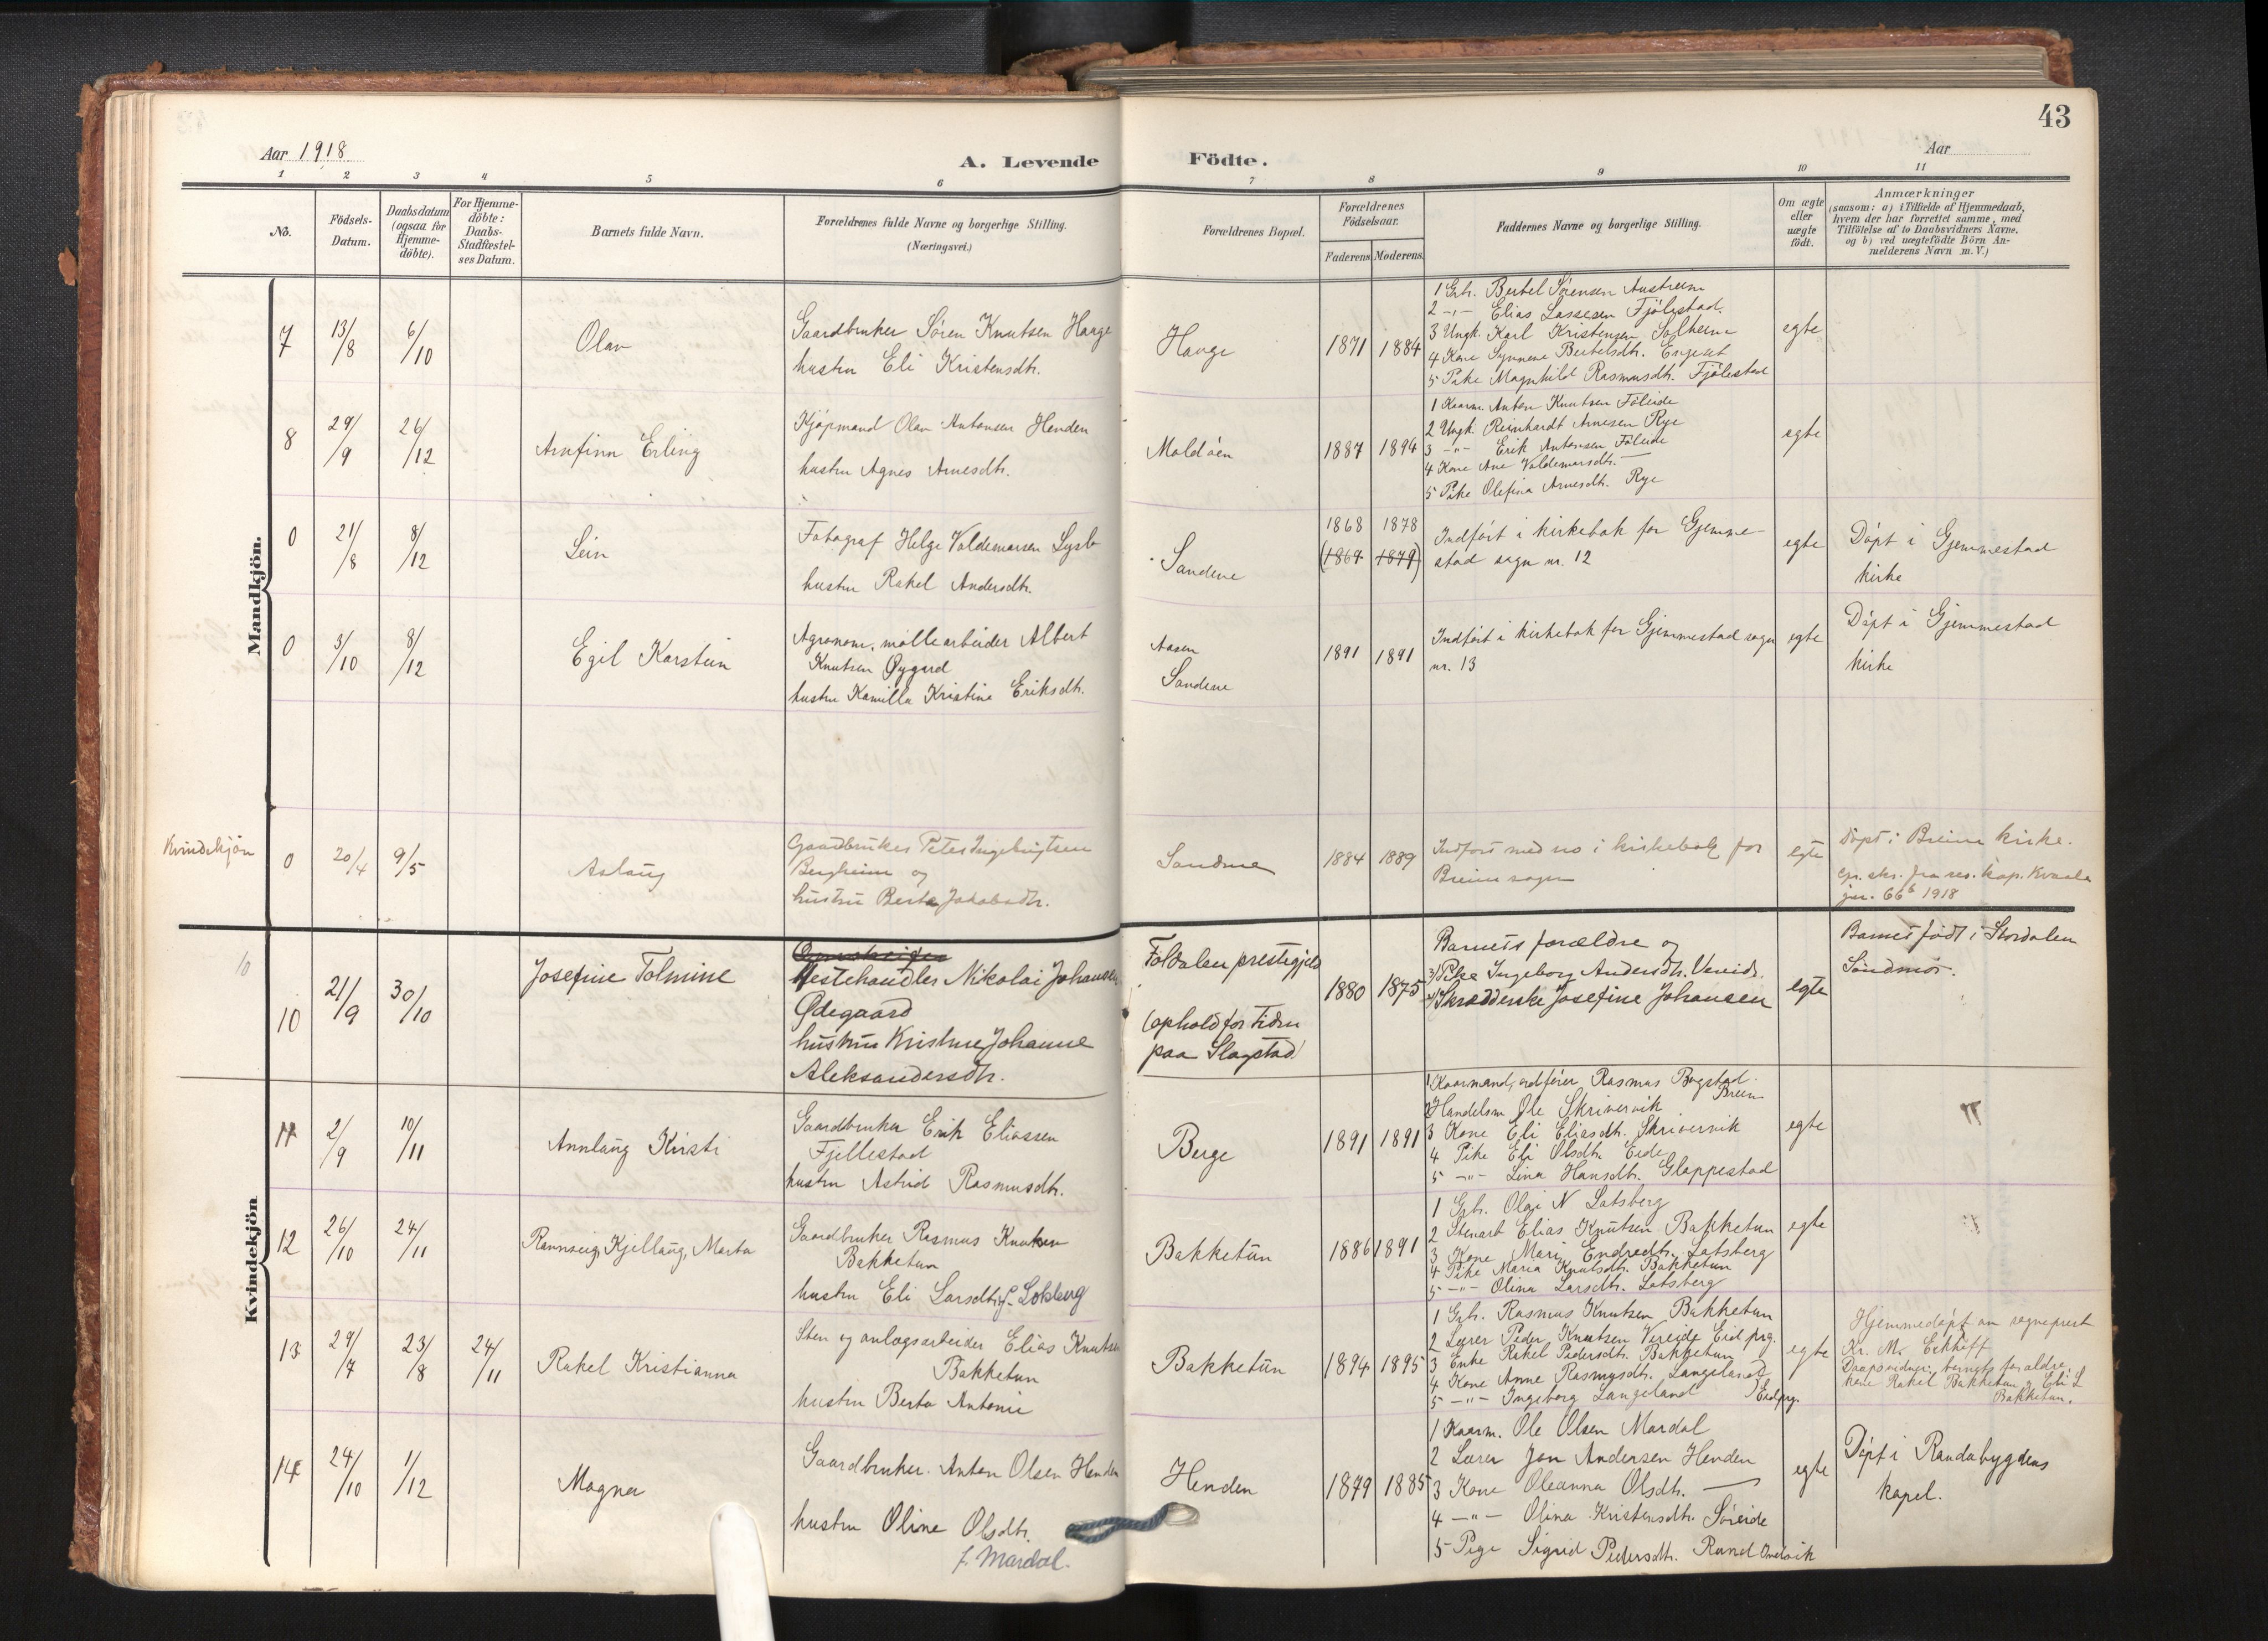 43
Aar 1918
A. Levende Födte.
Aar
1 2 3 4 5 6 7 8 9 10 11
No.
Födsels-Datum.
Daabsdatum (ogsaa for Hjemme-döbte).
For Hjemme-döbte: Daabs-Stadfæstel-ses Datum.
Barnets fulde Navn.
Forældrenes fulde Navne og borgerlige Stilling. (Næringsvei.)
Forældrenes Bopæl.
Forældrenes Födselsaar.
Faderens Moderens.
Faddernes Navne og borgerlige Stilling.
Om ægte eller uægte födt.
Anmærkninger
(saasom: a) i Tilfælde af Hjemmedaab,
hvem der har forrettet samme, med
Tilföielse af to Daabsvidners Navne,
og b) ved uægtefödte Börn An-
melderens Navn m. V.)
Mandkjön.
7 13/8 6/10 Olav
Gaardbruker Søren Knutsen Hauge
hustru Eli Kristensdtr.
Hauge
1871 1884
1 Grb. Bertel Sørensen Austreim
2 -"- Elias Lassesen Fjølestad.
3 Ungk. Karl Kristensen Solheim
4 Kone Synneve Bertelsdtr. Engeset
5 Pike Magnhild Rasmusdtr. Fjølestad
egte
8 29/9 26/12 Arnfinn Erling
Kjøpmand Olav Antonsen Henden
hustru Agnes Arnesdtr.
Moldøen
1887 1894
1 Kaarm. Anton Knutsen Føleide
2 Ungk. Reinhardt Arnesen Rye
3 -"- Erik Antonsen Føleide
4 Kone Ane Valdemarsdtr. —
5 Pike Olefina Arnesdtr. Rye
egte
0 21/8 8/12 Lein
Fotograf Helge Valdemarsen Lysbø
hustru Rakel Andersdtr.
Sandene
1868 1878
(1867 1879)
Indført i kirkebok for Gjemme-
stad sogn nr. 12
egte
Døpt i Gjemmestad
kirke
0 3/10 8/12 Egil Karstein
Agronom, møllearbeider Albert
Knutsen Øygard
hustru Kamilla Kristine Eriksdtr.
Aasen
Sandene
1891 1891
Indført i kirkebok for Gjemmestad sogn
nr. 13
egte
Døpt i Gjemmestad
kirke
Kvindekjøn
0 20/4 9/5 Aslaug
Gaardbruker Peter Ingebrigtsen
Bergheim og
hustru Berte Jakobsdtr.
Sandene
1884 1889
Indført med no i kirkebok for
Breim sogn
egte
Døpt i Breim kirke.
cfr. skr. fra res. kap. Kvaale
jnr. 66b 1918
Kvindekjön
10
10 21/9 30/10 Josefine Tolmine
Hestehandler Nikolai Johansen
Ødegaard
hustru Kristine Johanne
Aleksandersdtr.
Foldalen prestegjeld
(ophold for tiden
paa Slagstad)
1880 1875
Barnets forældre og
3) Pike Ingeborg Andersdtr. Vereide.
4) Skrædderske Josefine Johansen
egte
Barnet født i Stordalen
Søndmør.
11 2/9 10/11 Annlaug Kirsti
Gaardbruker Erik Eliassen
Fjellestad
hustru Astrid Rasmusdtr.
Berge
1891 1891
1 Kaarmand, ordfører Rasmus Bogstad
Breim
2 Handelsm. Ole Skrivervik
3 Kone Eli Eliasdtr. Skrivervik
4 Pike Eli Olsdtr. Eide
5 -"- Lina Hansdtr. Gloppestad
egte
12 26/10 24/11 Rannveig, Kjellaug, Marta
Gaardbruker Rasmus Knutsen
Bakketun
hustru Eli Larsdtr. f. Lotsberg
Bakketun
1886 1891
1 Grb. Olai N Lotsberg
2 Stenarb Elias Knutsen Bakketun
3 Kone Mari Endredtr. Lotsberg
4 Pike Maria Knutsdtr. Bakketun
5 -"- Olina Larsdtr. Lotsberg
egte
13 29/7 23/8 24/11 Rakel Kristianna
Sten og anlægsarbeider Elias Knutsen
Bakketun
hustru Berta Antonie
Bakketun
1894 1895
1 Grb. Rasmus Knutsen Bakketun
2 Lærer Peder Knutsen Vereide Eid prg.
3 Enke Rakel Pedersdtr. Bakketun
4 Kone Anne Rasmusdtr. Langeland
5 -"- Ingeborg Langeland } Eid prg.
egte
Hjemmedøpt av sogneprest
Kr. M. Eckhoff
Daapsvidner: barnets forældre,
kone Rakel Bakketun og Eli L
Bakketun.
14 24/10 1/12 Magna
Gaardbruker. Anton Olsen Henden
hustru Oline Olsdtr.
f. Mardal.
Henden
1879 1885
1 Kaarm. Ole Olsen Mardal
2 Lærer Jon Andersen Henden
3 Kone Oleanna Olsdtr. —
4 -"- Olina Kristensdtr. Søreide
5 Pige Sigrid Pedersdtr. Rand Innvik
egte
Døpt i Randabygdens
kapel.